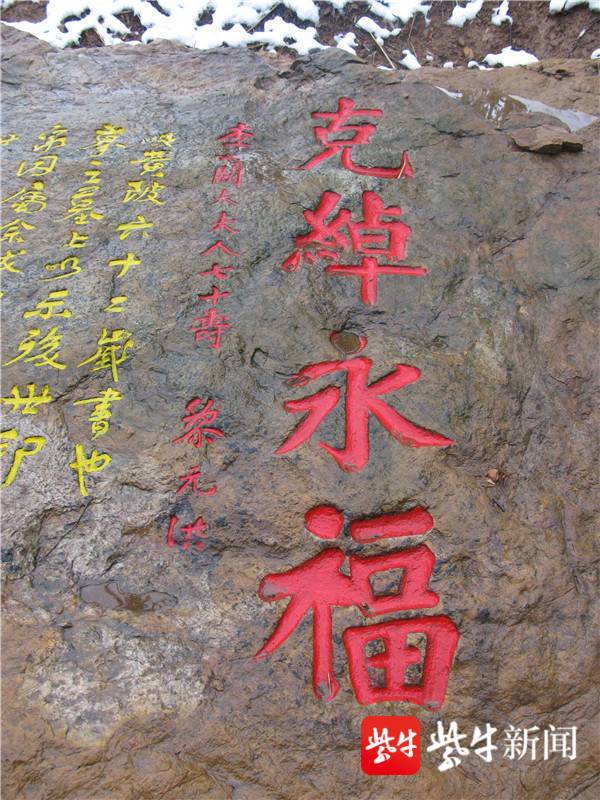 克綽永福
李闕太夫人七十壽
黎元洪
此黃陂六十二歲書也
之墓上以示後世
紫牛 紫牛新闻